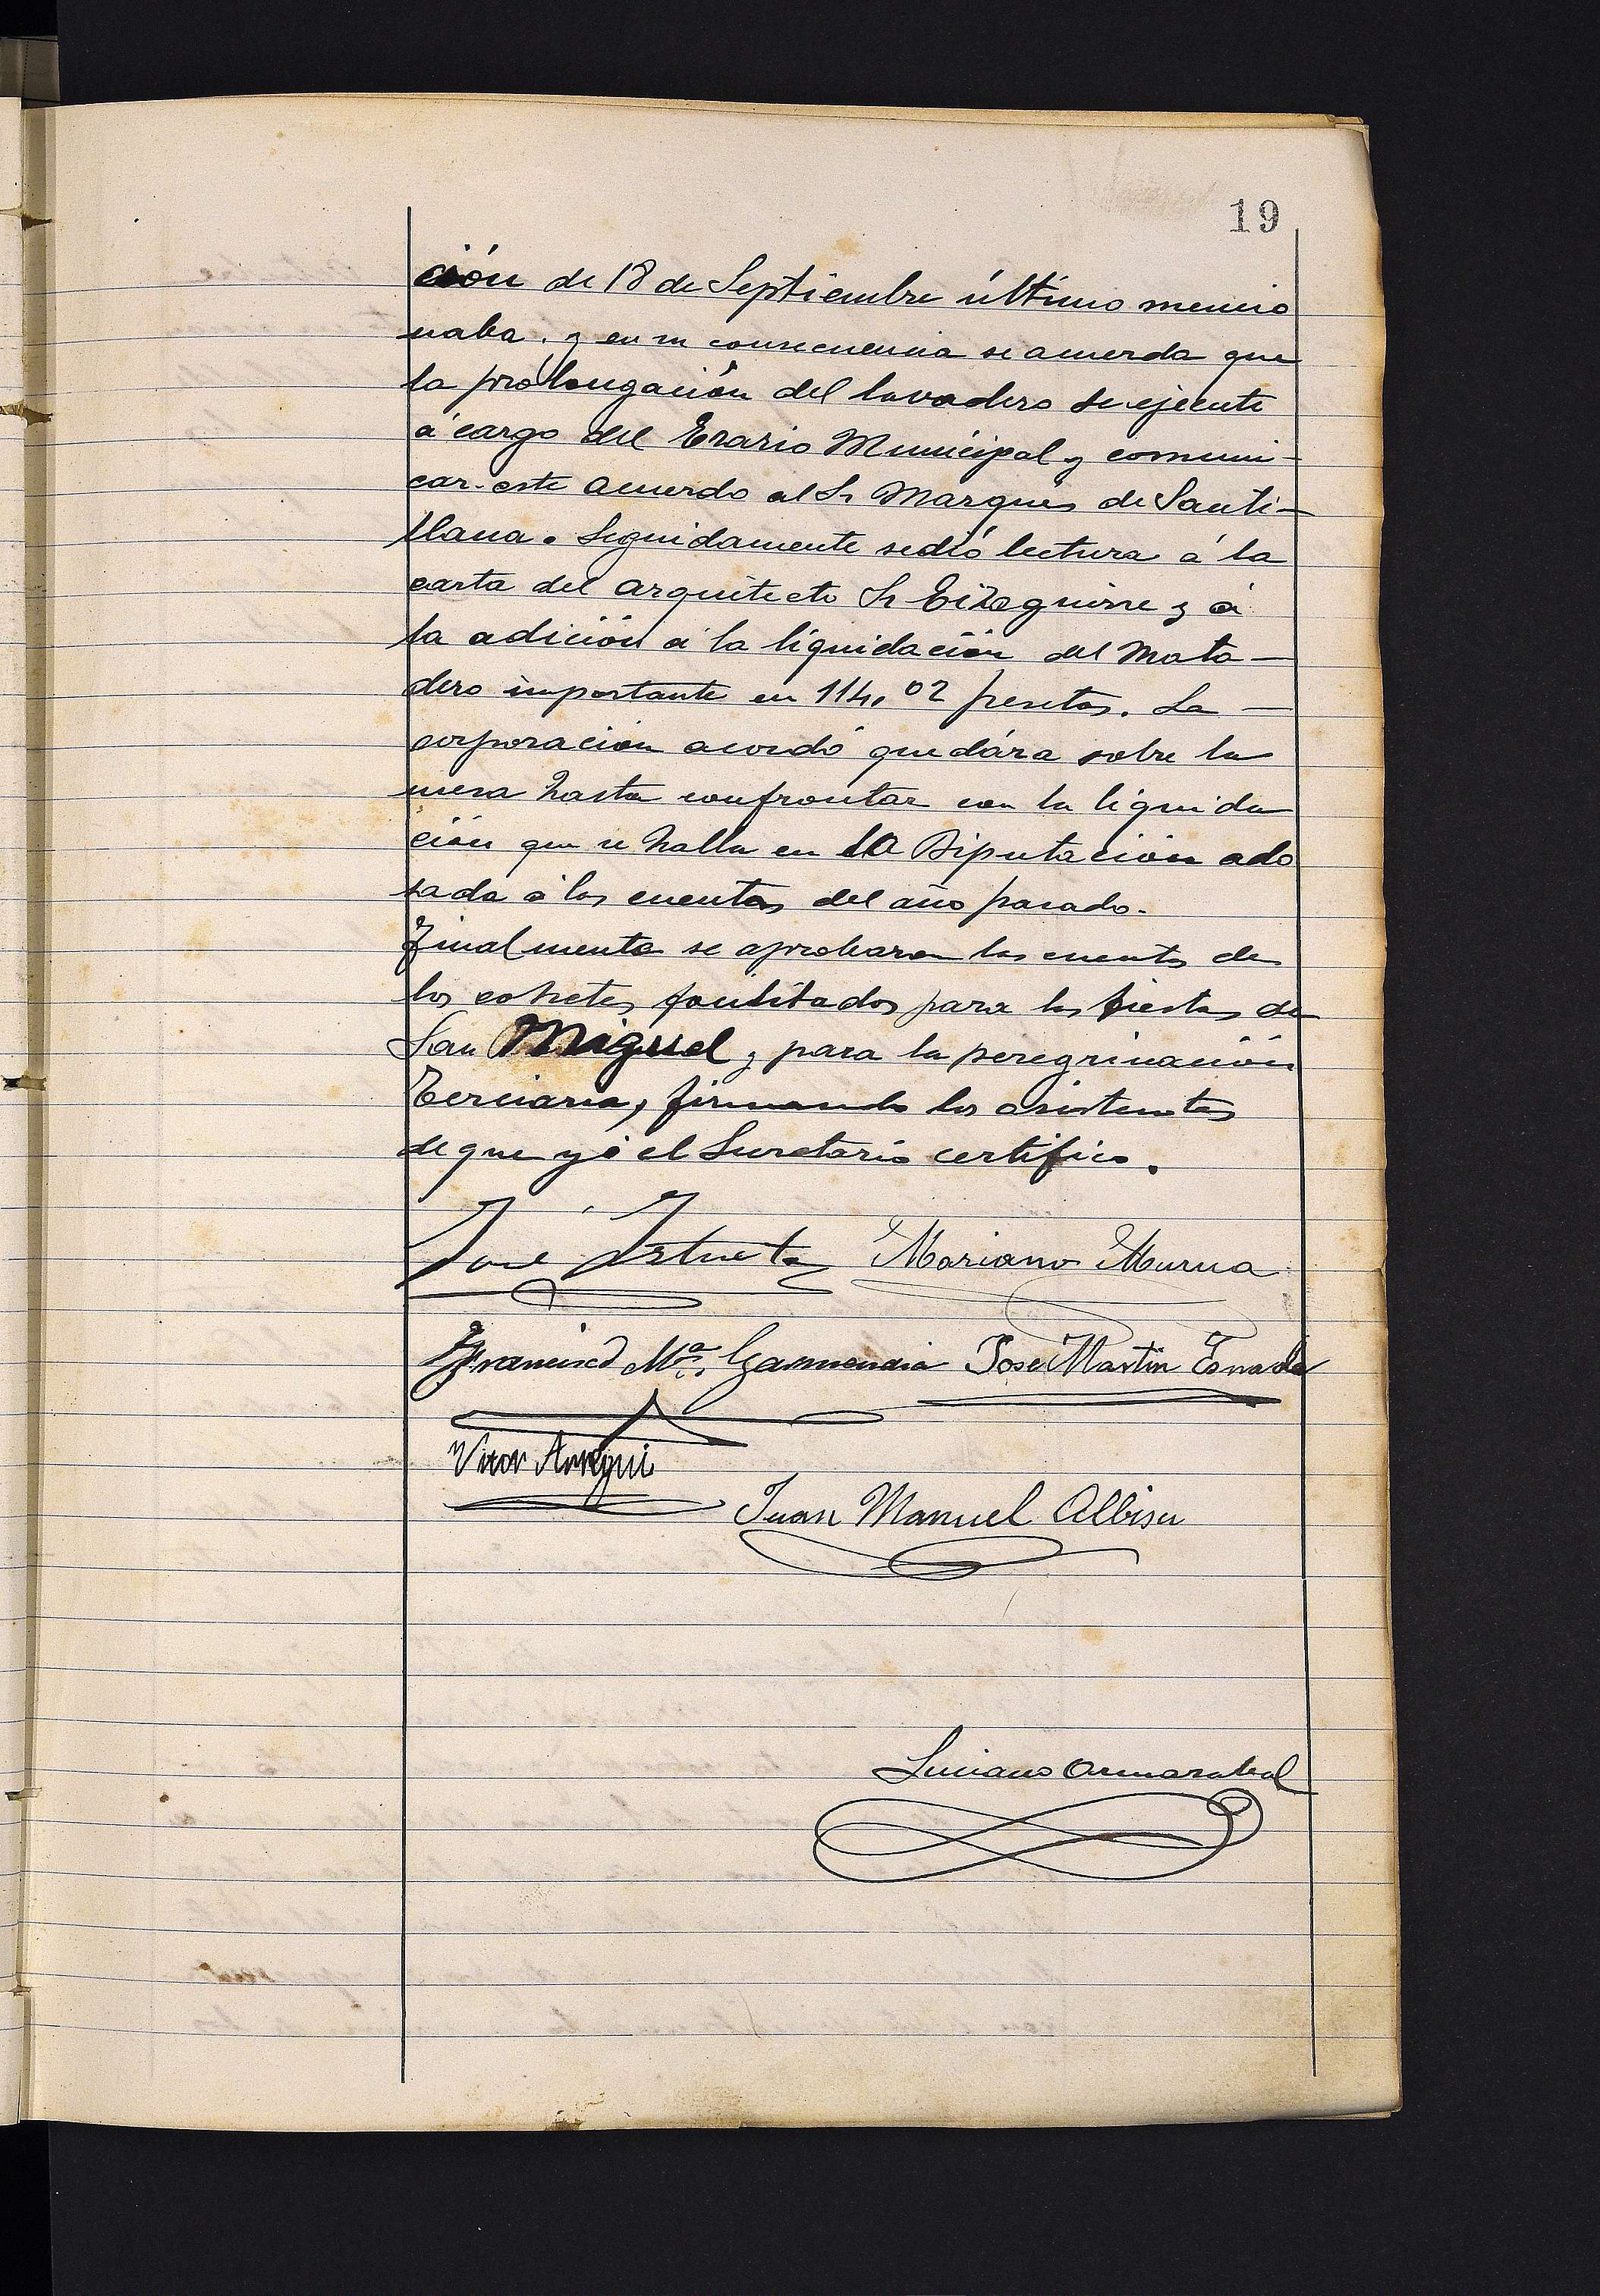 19
ción de 18 de Septiembre último mencio
naba, y en su consecuencia se acuerda que
la prolongación del lavadero se ejecute
á cargo del Erario Municipal y comuni-
car este acuerdo al Sr Marqués de Santi-
llana. Seguidamente se dió lectura á la
carta del arquitecto Sr Eizaguirre y á
la adición á la liquidación del Mata-
dero importante en 114,02 pesetas. La -
corporación acordó quedára sobre la
mesa hasta confrontar con la liquida
ción que se halla en la Diputación ado
sada á las cuentas del año pasado.
Finalmente se aprobaron las cuentas de
los cohetes facilitados para las fiestas de
San Miguel y para la peregrinación
Terciaria, firmando los asistentes
de que yó el Secretario certifico.
José Mariano Murua
Francisco Mª Garmendia Jose Martin Esnaola
Juan Manuel Albisu
Luciano Ormazabal